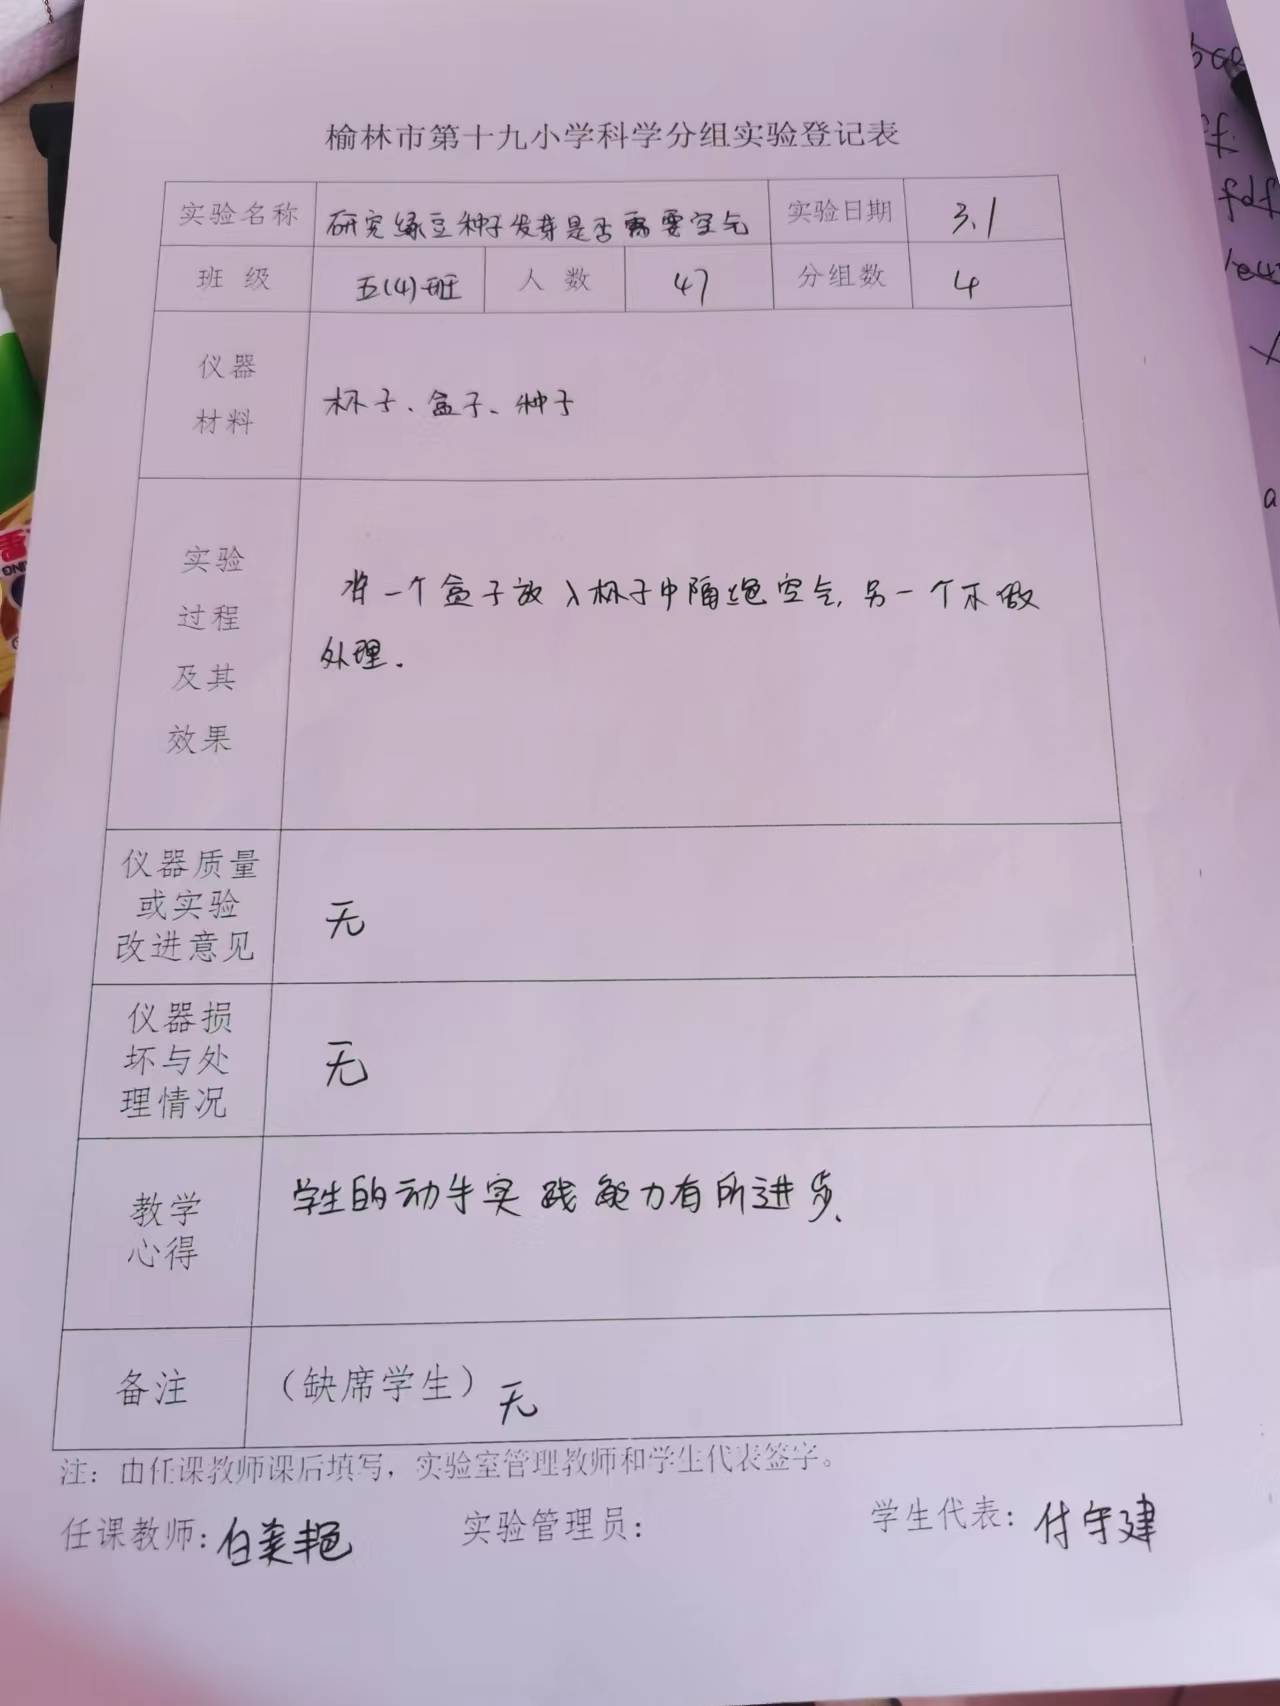 榆林市第十九小学科学分组实验登记表
实验名称 研究绿豆种子发芽是否需要空气 实验日期 3.1
班 级 五(4)班 人 数 47 分组数 4
仪器
材料
杯子、盒子、种子
实验
过程
及其
效果
将一个盒子放入杯子中隔绝空气,另一个不做
处理.
仪器质量
或实验
改进意见
无
仪器损
坏与处
理情况
无
教学
心得
学生的动手实践能力有所进步、
备注 (缺席学生) 无
注：由任课教师课后填写，实验室管理教师和学生代表签字。
任课教师: 白美艳 实验管理员: 学生代表: 付守建